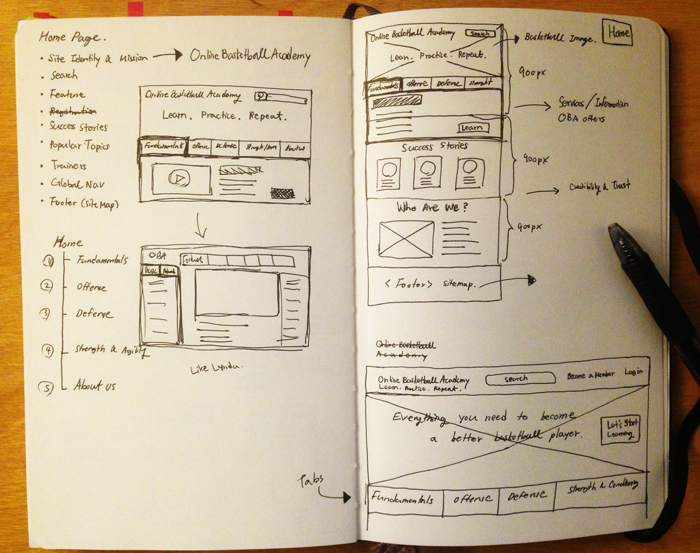 Home Page.
• Site Identity & Mission → Online Basketball Academy
• Search
• Feature
• Registration
• Success Stories
• Popular Topics
• Trainers
• Global Nav
• Footer (sitemap)
Online Basketball Academy
Learn. Practice. Repeat.
Fundamentals offense defense
Home
① Fundamentals
② Offense
③ Defense
④ Strength & Agility
⑤ About us
OBA
Like Lynda.
Online Basketball Academy Search
Learn. Practice. Repeat.
Fundamentals offense Defense strength
Learn
Success Stories
Who Are We?
< Footer > sitemap.
Basketball Image.
Home
900px
Services/Information
OBA offers
900px
Credibility & Trust
900px
Online Basketball
Academy
Online Basketball Academy search Become a Member Login
Learn. Practice. Repeat.
Everything you need to become
a better basketball player.
Let's Start
Learning
Tabs
Fundamentals offense Defense Strength & Conditioning